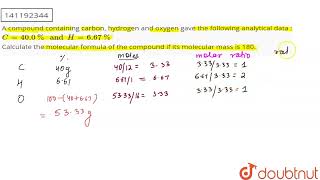 141192344
A compound containing carbon, hydrogen and oxygen gave the following analytical data :
C = 40.0 % and H = 6.67 %
Calculate the molecular formula of the compound if its molecular mass is 180.
moles molar ratio rad
C 40g 40/12 = 3.33 3.33/3.33 = 1
H 6.67 6.67/1 = 6.67 6.67/3.33 = 2
O 100-(40+6.67) 53.33/16 = 3.33 3.33/3.33 = 1
= 53.33 g
doubtnut